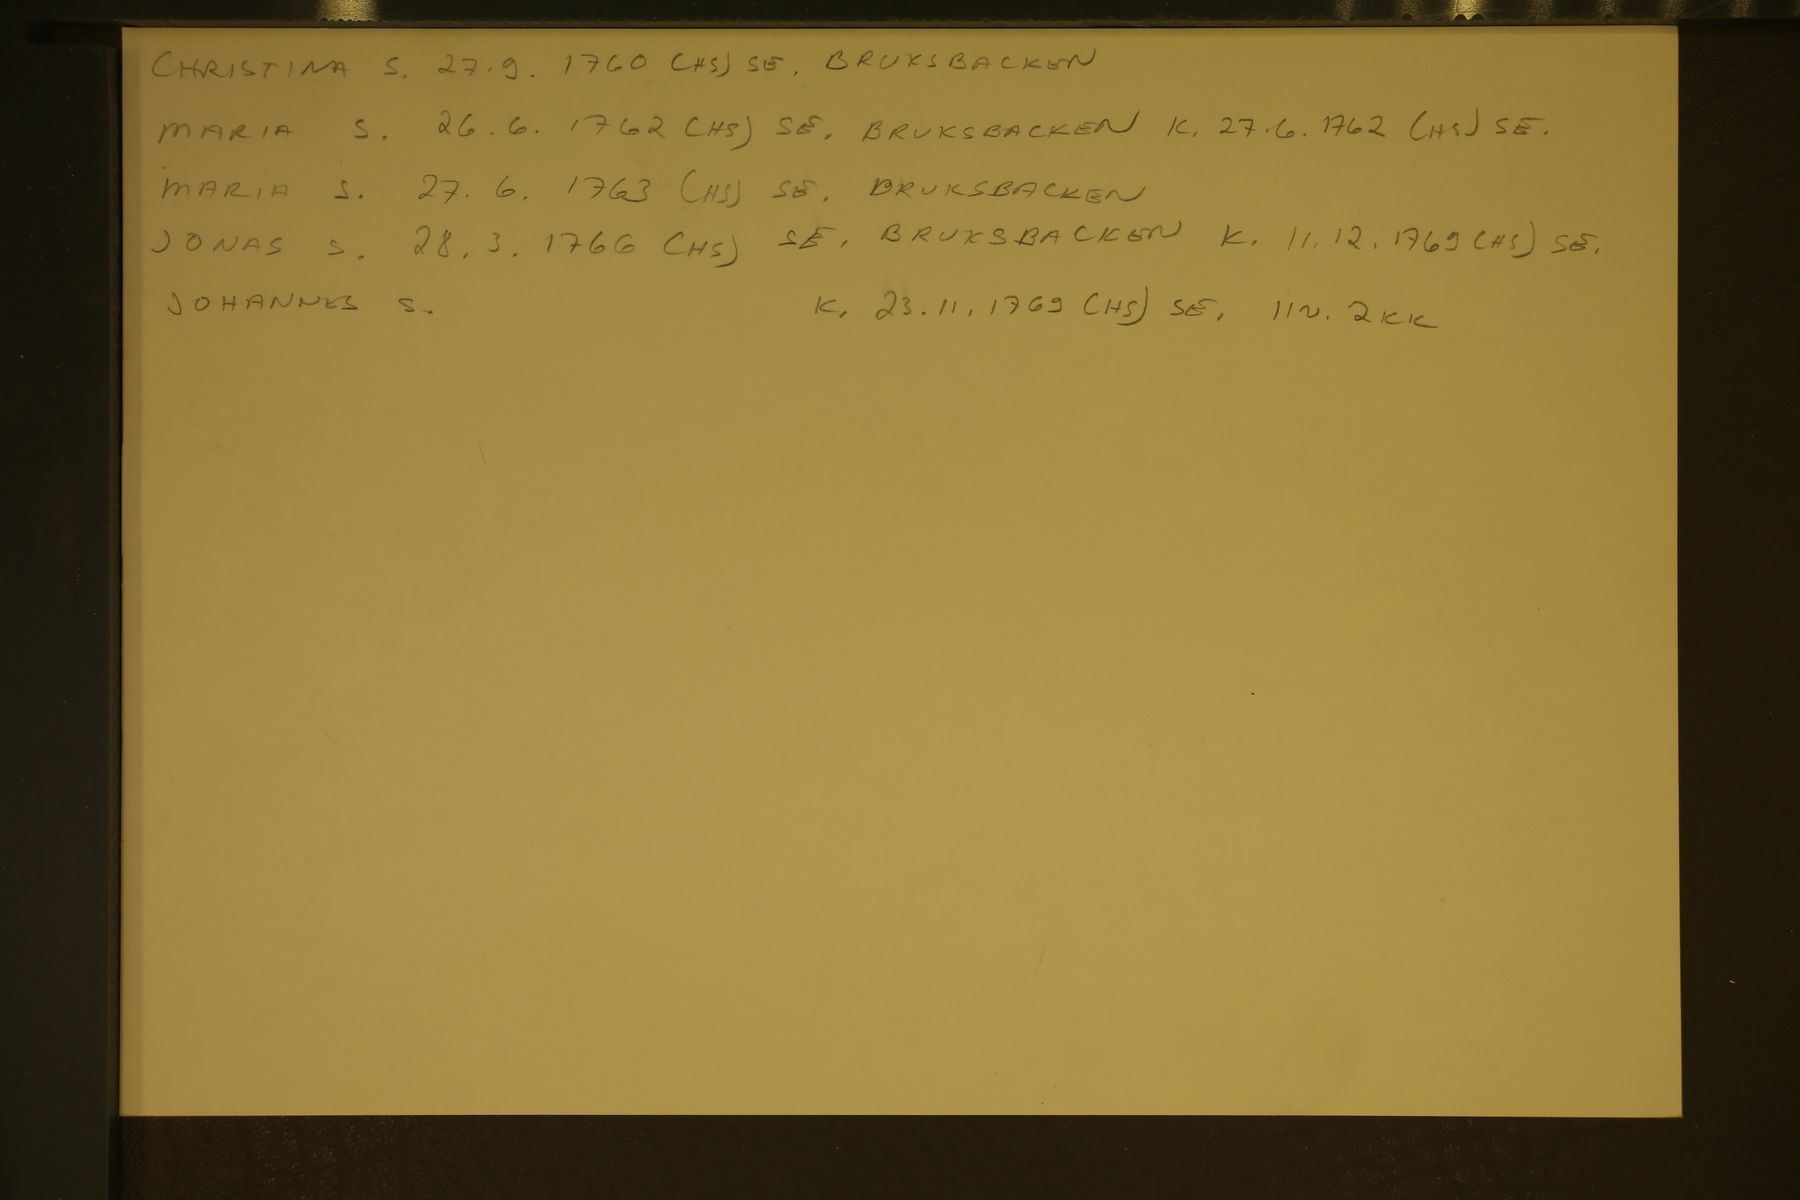 CHRISTINA S. 27.9. 1760 (HS) SE. BRUKSBACKEN
MARIA S. 26.6. 1762 (HS) SE. BRUKSBACKEN K. 27.6. 1762 (HS) SE.
MARIA S. 27.6. 1763 (HS) SE. BRUKSBACKEN
JONAS S. 28.3. 1766 (HS) SE. BRUKSBACKEN K. 11.12. 1769 (HS) SE.
JOHANNES S. K. 23.11. 1769 (HS) SE. 11V. 2KK